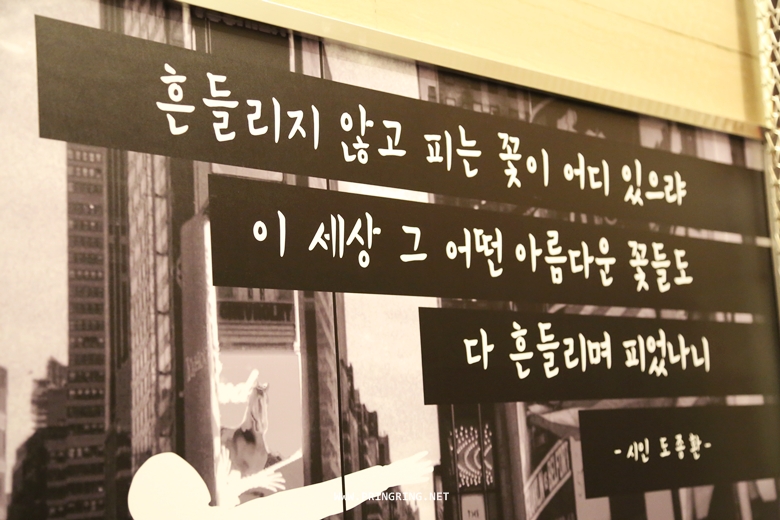 흔들리지 않고 피는 꽃이 어디 있으랴
이 세상 그 어떤 아름다운 꽃들도
다 흔들리며 피었나니
-시인 도종환-